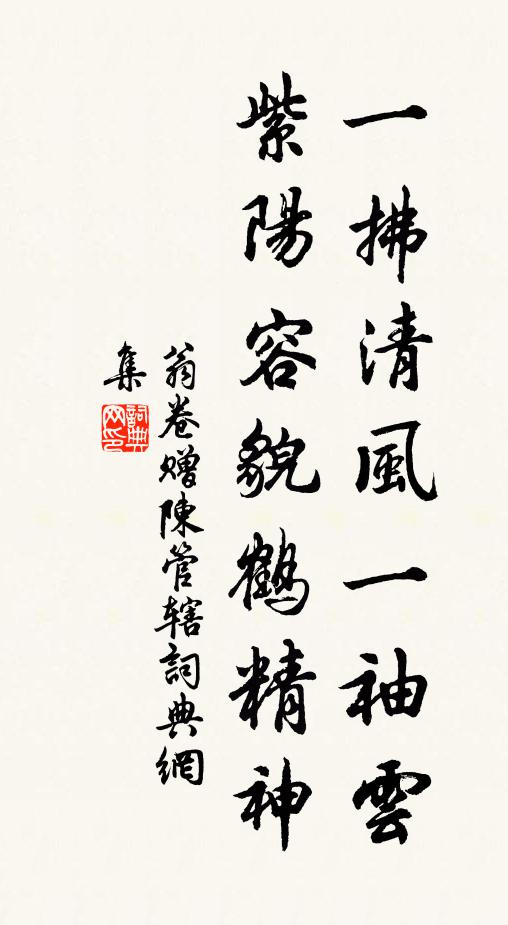 一拂清風一袖雲
紫陽容貌鶴精神
翁卷赠陳管辖詞典網
集
詞典网印